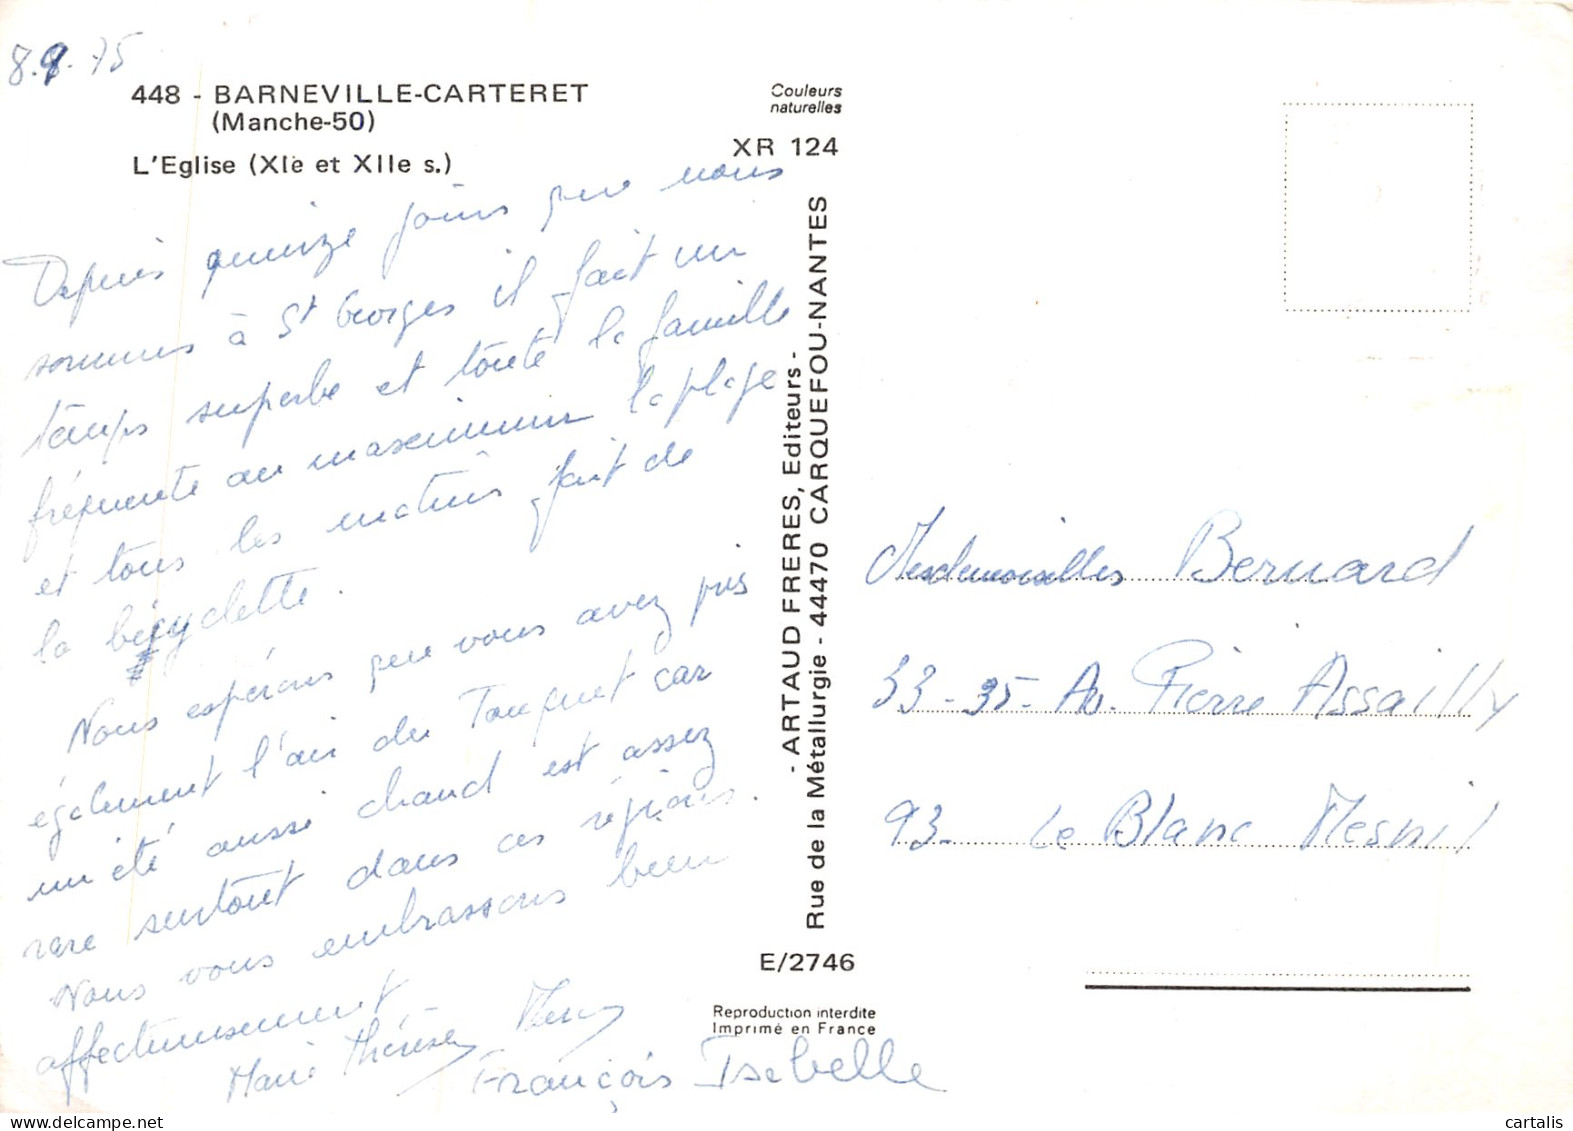 8.9.75
448 - BARNEVILLE-CARTERET
(Manche-50)
L'Eglise (XIe et XIIe s.)
Couleurs
naturelles
XR 124
Depuis quinze jours que nous
sommes à St Georges il fait un
temps superbe et toute la famille
fréquente au maximum la plage
et tous les matins fait de
la bicyclette.
Nous espérons que vous avez pris
également l'air du Touquet car
un été aussi chaud est assez
rare surtout dans ces régions.
Nous vous embrassons bien
affectueusement
Marie Thérèse
François Isabelle
- ARTAUD FRERES, Editeurs -
Rue de la Métallurgie - 44470 CARQUEFOU-NANTES
E/2746
Reproduction interdite
Imprimé en France
Mesdemoiselles Bernard
33-35- Av. Pierre Assailly
93- Le Blanc Mesnil
cartalis